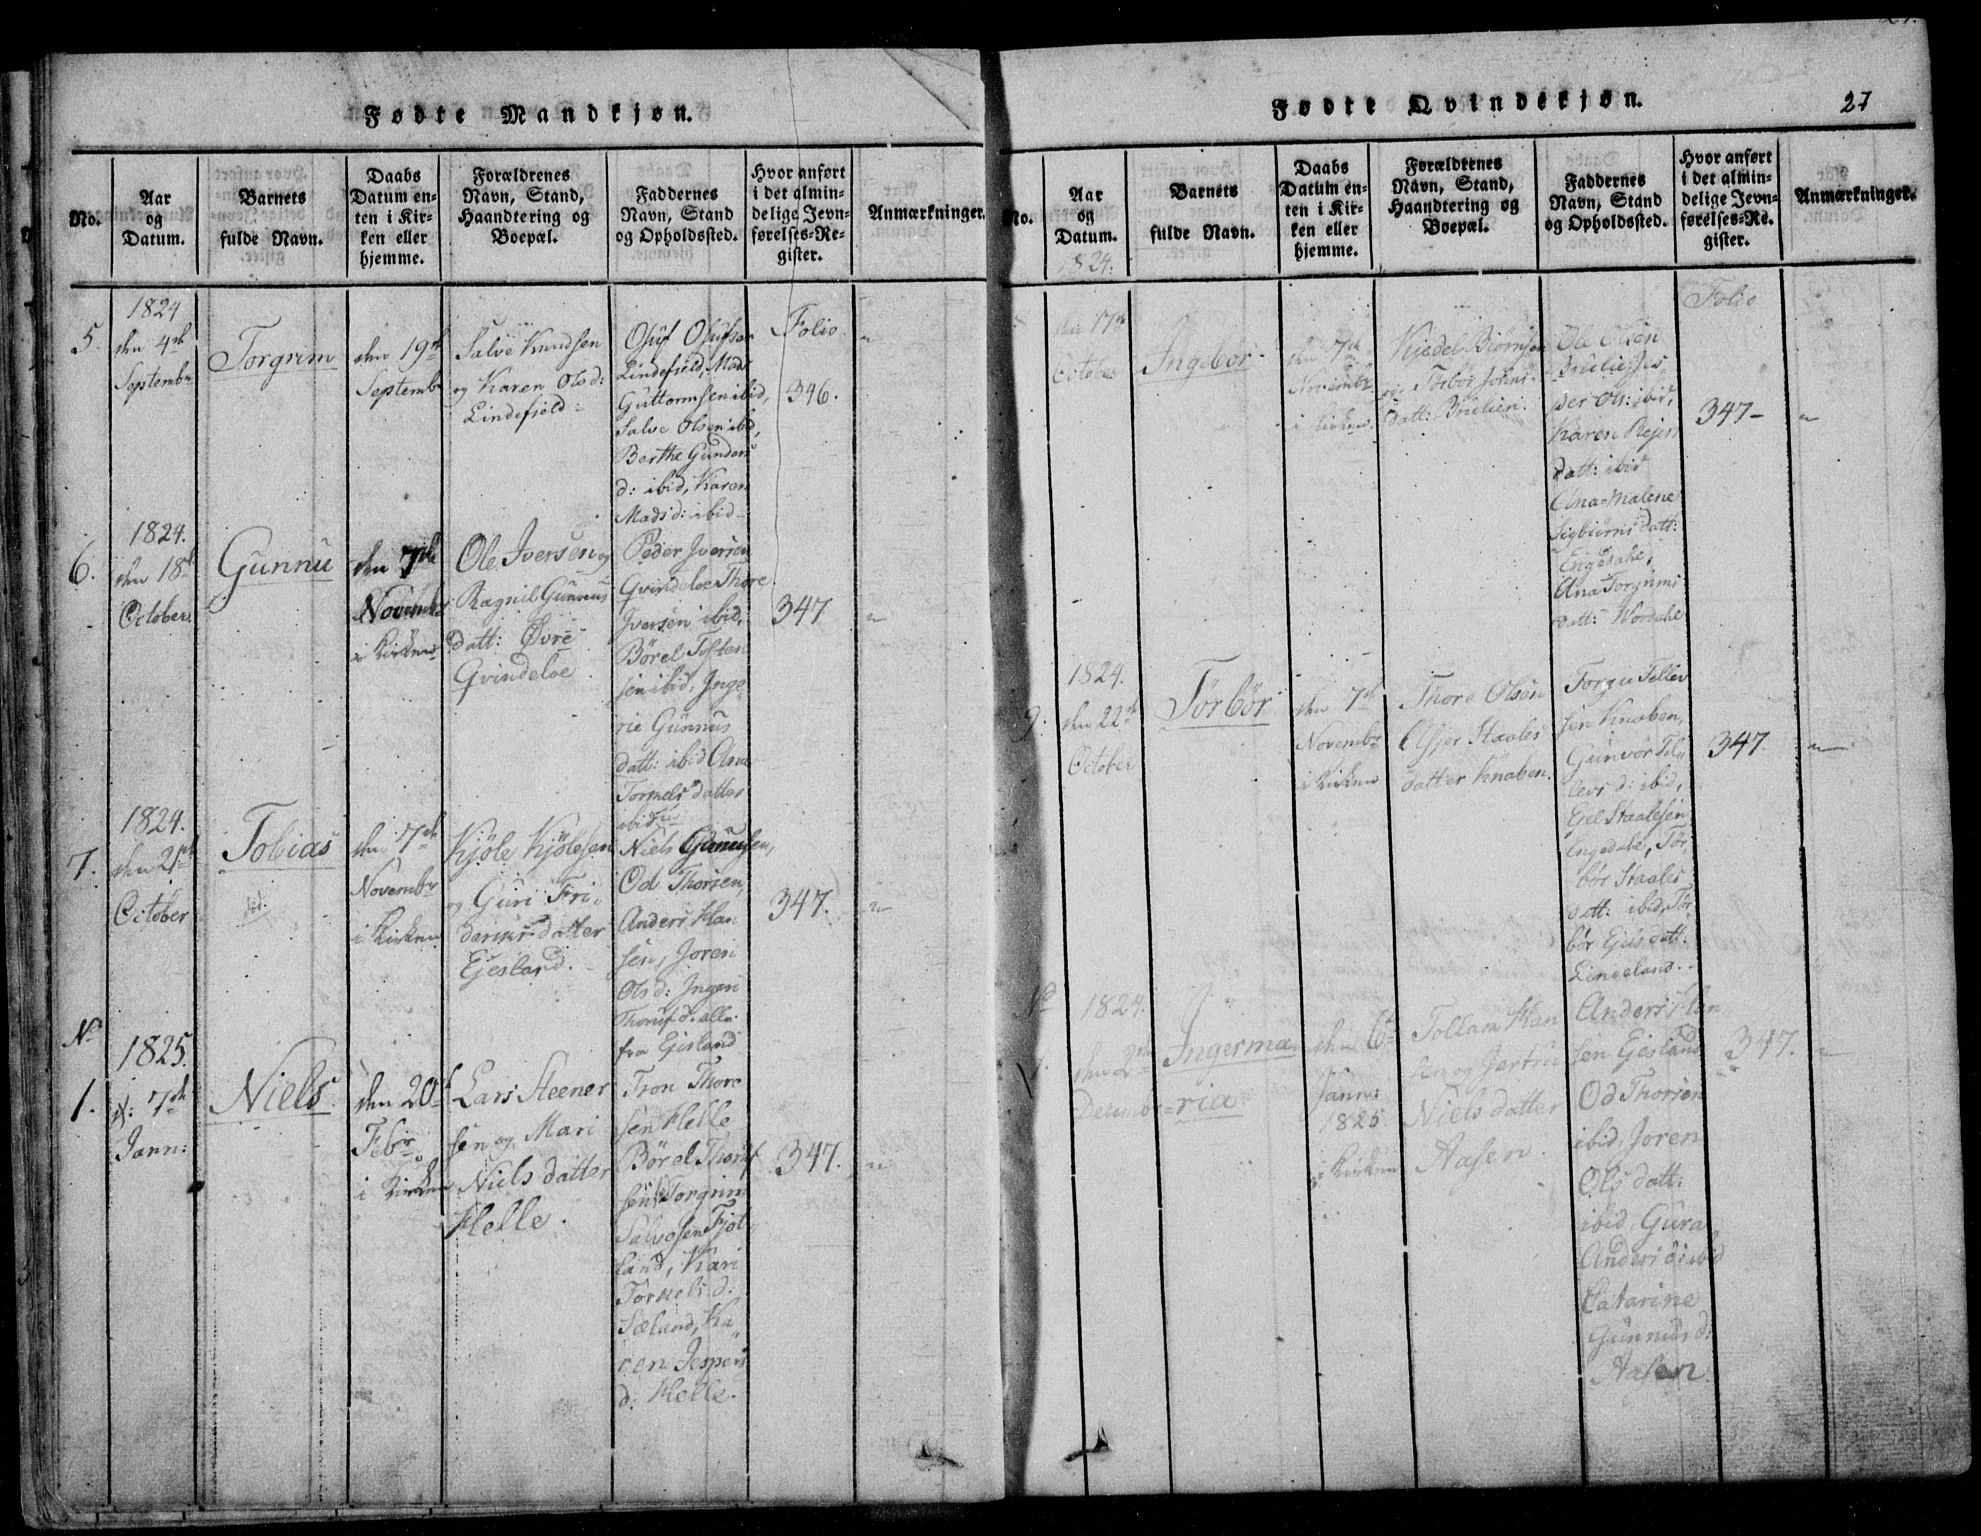 Fødte Mandkjøn.
No.
Aar
og
Datum.
Barnets
fulde Navn.
Daabs
Datum en-
ten i Kir-
ken eller
hjemme.
Forældrenes
Navn, Stand,
Haandtering og
Boepæl.
Faddernes
Navn, Stand
og Opholdssted.
Hvor anført
i det almin-
delige Jevn-
førelses-Re-
gister.
Anmærkninger.
5.
1824
den 4de
Septembr
Torgrim
den 19de
Septembr
Salve Knudsen
og Karen Olsd:
Lindefield:
Osuf Osufsen
Lindefield, Mads
Guttormsen ibid,
Salve Olsen ibid,
Berthe Gunders
d: ibid, Karen
Madsd: ibid
Folio
346.
6.
1824.
den 18de
October
Gunnu
den 7de
Novembr
i Kirken
Ole Iversen og
Ragnil Gunnus
datt: Øvre
Qvindeloe
Peder Iversen
Qvindeloe Thore
Iversen ibid,
Börel Tosten
sen ibid, Inge
rie Gunnus
datt: ibid Ane
Tormels datter
ibid
347
7.
1824.
den 21de
October
Tobias
den 7de
Novembr
i Kirken
Kjöle Kjölesen
og Guri Fri-
derichs datter
Ejesland.
Niels Gunnusen,
Od Thorsen,
Anders Han
sen, Joren
Olsd: Ingeri
Thorufd. alle
fra Eiesland
347.
No
1.
1825.
d: 7de
Jann:
Niels
den 20de
Febr.
i Kirken
Lars Steener
sen og Mari
Niels datter
Helle.
Tron Thore
sen Helle
Börel Thoruf
sen Torgrim
Salvesen Fjot
land, Kari
Tormels d.
Sæland, Ka
ren Jespers
d: Helle.
347.
Fødte Qvindekjøn.
27
No.
Aar
og
Datum.
Barnets
fulde Navn.
Daabs
Datum en-
ten i Kir-
ken eller
hjemme.
Forældrenes
Navn, Stand,
Haandtering og
Boepæl.
Faddernes
Navn, Stand
og Opholdssted.
Hvor anført
i det almin-
delige Jevn-
førelses-Re-
gister.
Anmærkninger.
1824.
den 17de
October
Ingebor
den 7de
Novembr
i Kirken
Kjedel Biörnsen
og Törbor Johns
datt: Brielien.
Ole Olsen
Brielie, Jes
per Ols: ibid,
Karen Rejers
datt: ibid
Ana Malene
Sigbiörns datt:
Engedahl,
Ana Torgrims
datt: Wordahl
Folio
347
9.
1824.
den 22de
October
Törbör
den 7de
Novembr
i Kirken
Thore Olsen
Asjer Staales
datter Knaben.
Torgie Tellev
sen Knaben,
Gunvor Tel
levs d: ibid,
Egel Staalesen
Engedahl, Tör
bör Staales
datt: ibid, Tör
bör Egels datt:
Lindeland.
347.
No
1.
1824.
den 2de
Decembr
Ingerma
ria
den 6te
Jann:
1825
i Kirken
Tollam Han
sen og Jertru
Niels datter
Aasen.
Anders Han
sen Eiesland
Od Thorsen
ibid, Joren
Ols datt:
ibid, Gura
Anders d: ibid
Catarine
Gunnus d:
Aasen
347.